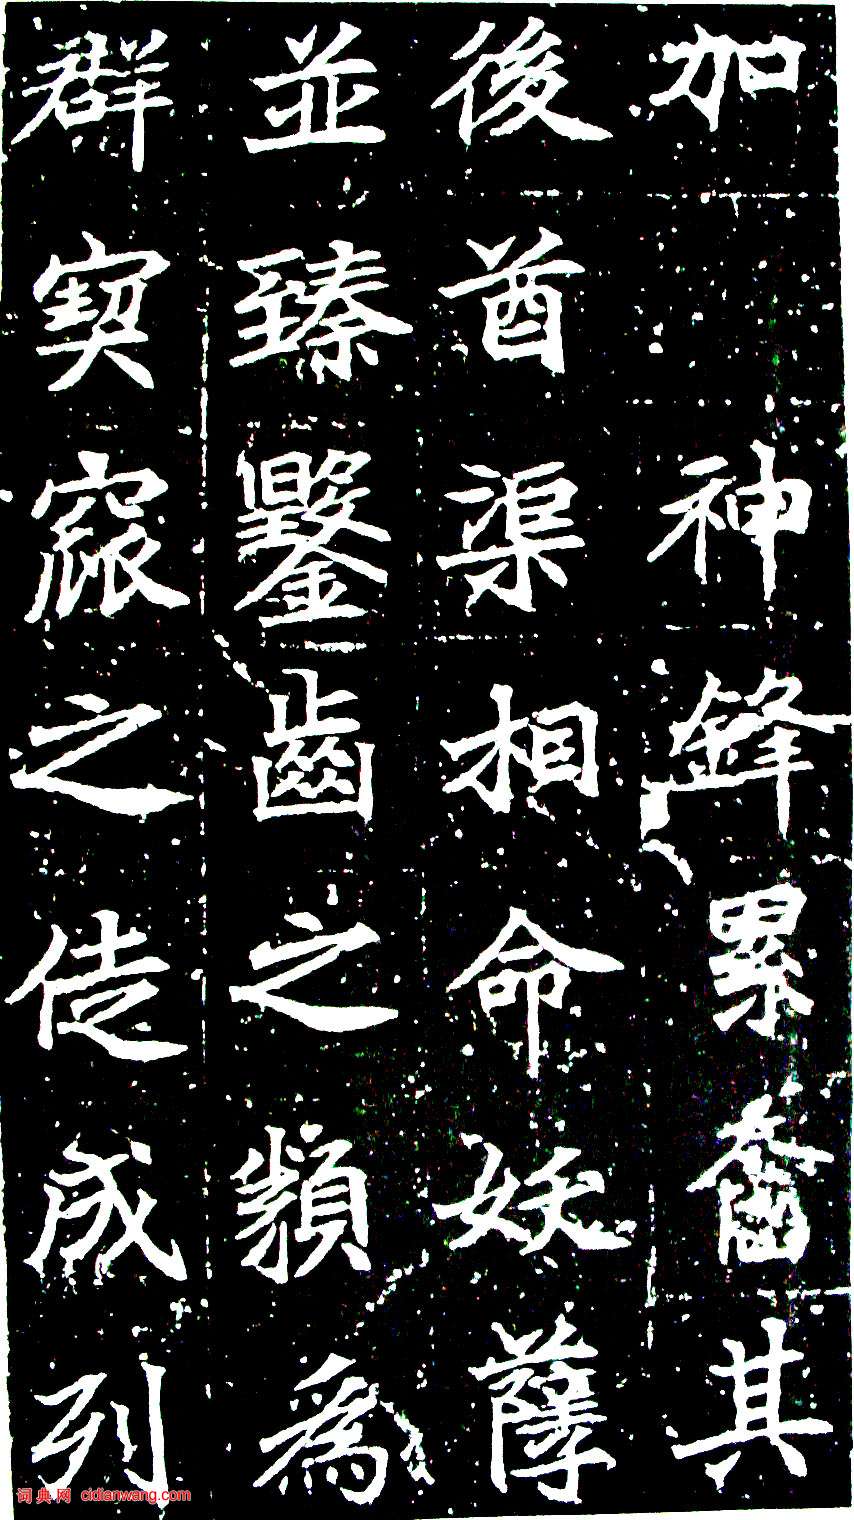 加神鋒累其
後酋渠相命妖
並臻鑿齒之類為
群窫窳之徒成列
词典网 cidianwang.com